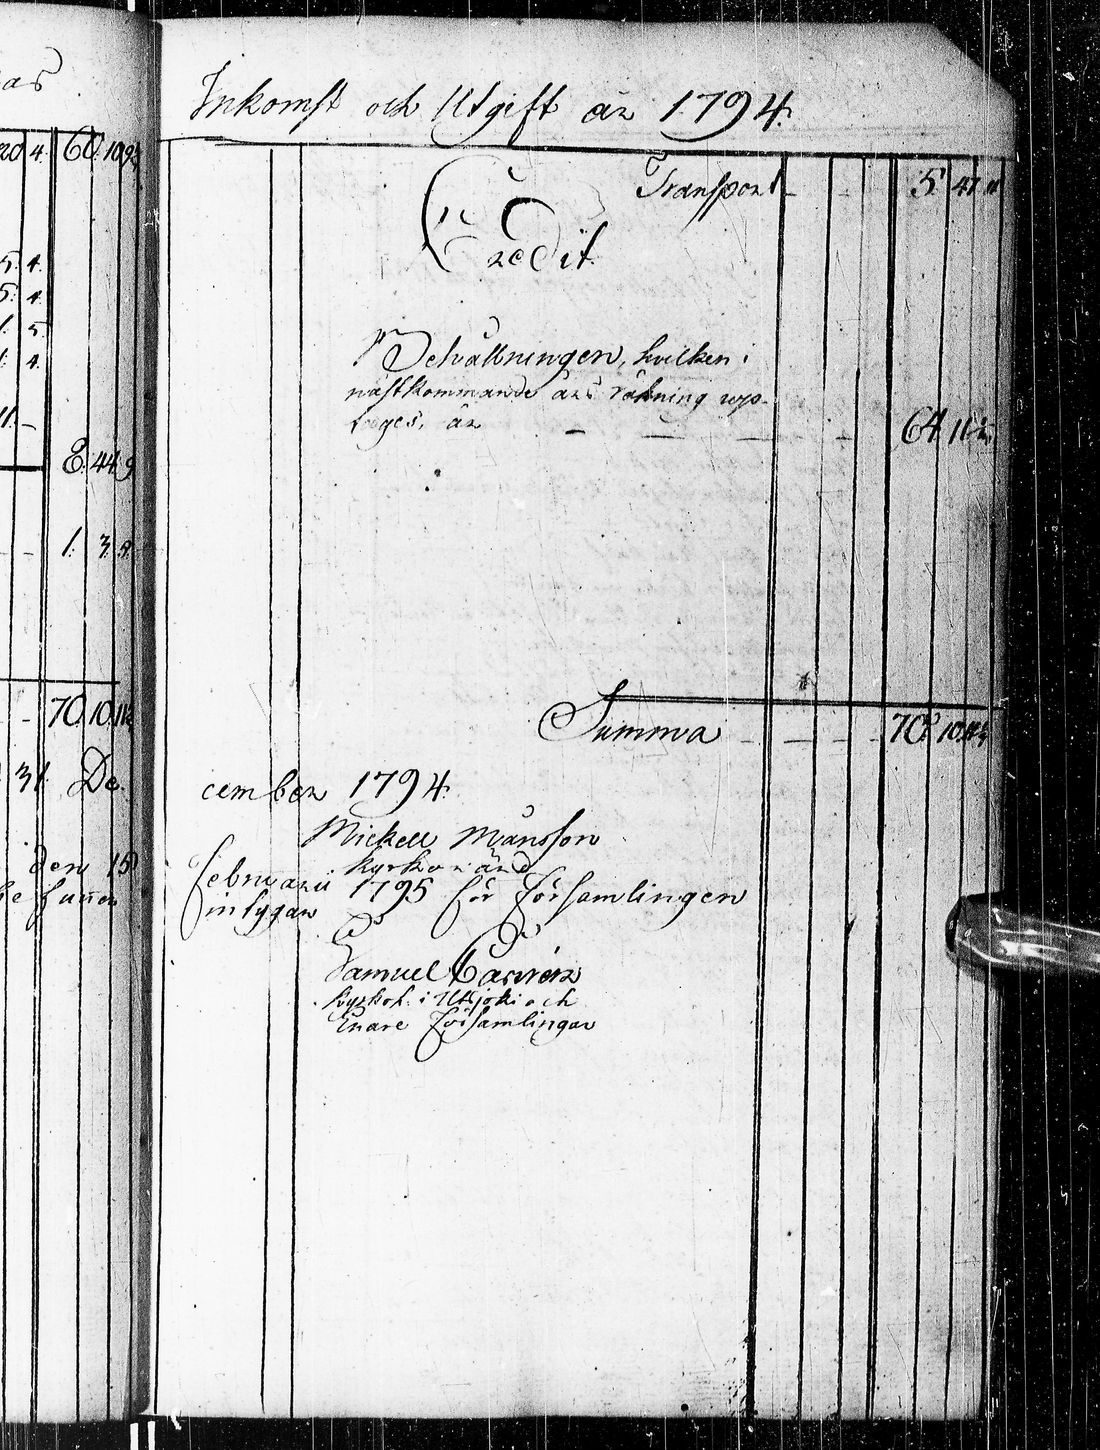 as
20 4. 60. 10 9½
5. 4.
5. 4
1. 5
1. 4.
11. –
8. 44 9
1. 3. 9.
70 10 11½
31 De-
den 15
funnen
Inkomst och Utgift år 1794.
Transport – – 5 47 11
Credit.
Behållningen, hvilken i
nästkommande års räkning upp-
tages, är – – – – 64 11
Summa – – – – 70 10 11½
cember 1794.
Mickell Månsson
kyrkovärd
februarii 1795 för församlingen
intygar
Samuel Castrén
kyrkoh. i Utsjoki och
Enare församlingar